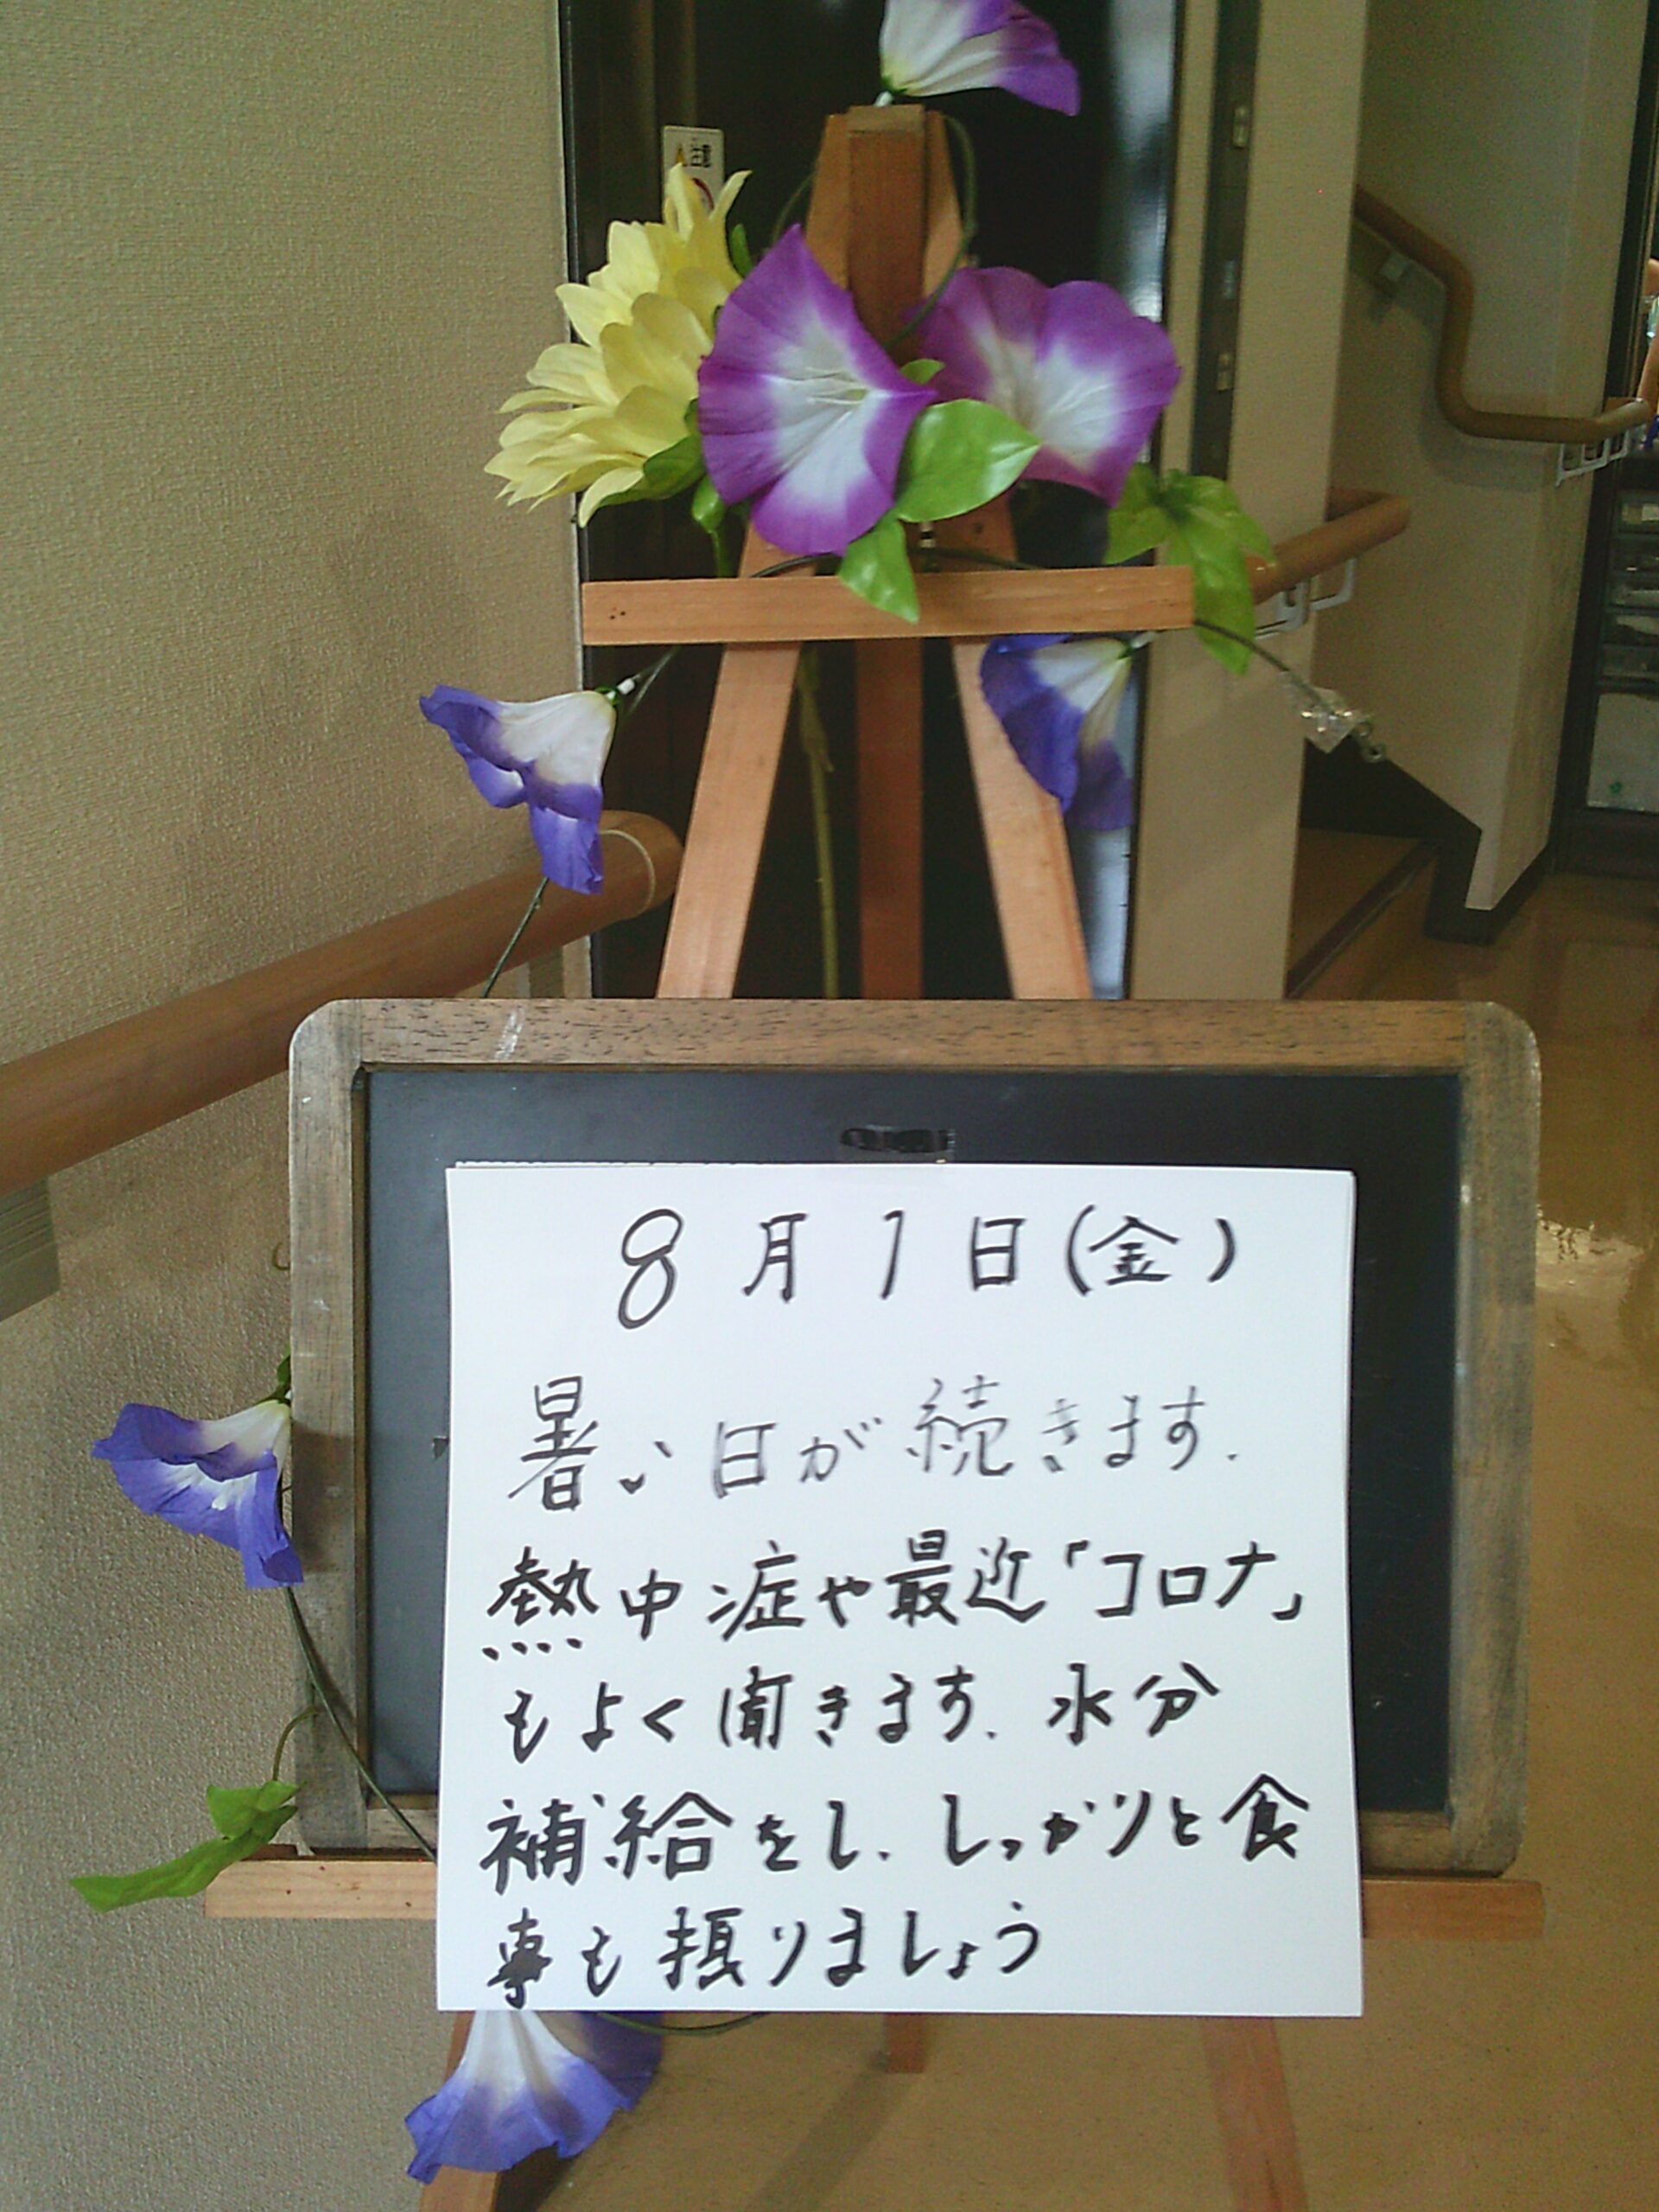 注意
8月1日(金)
暑い日が続きます.
熱中症や最近「コロナ」
もよく聞きます. 水分
補給をし. しっかりと食
事も摂りましょう